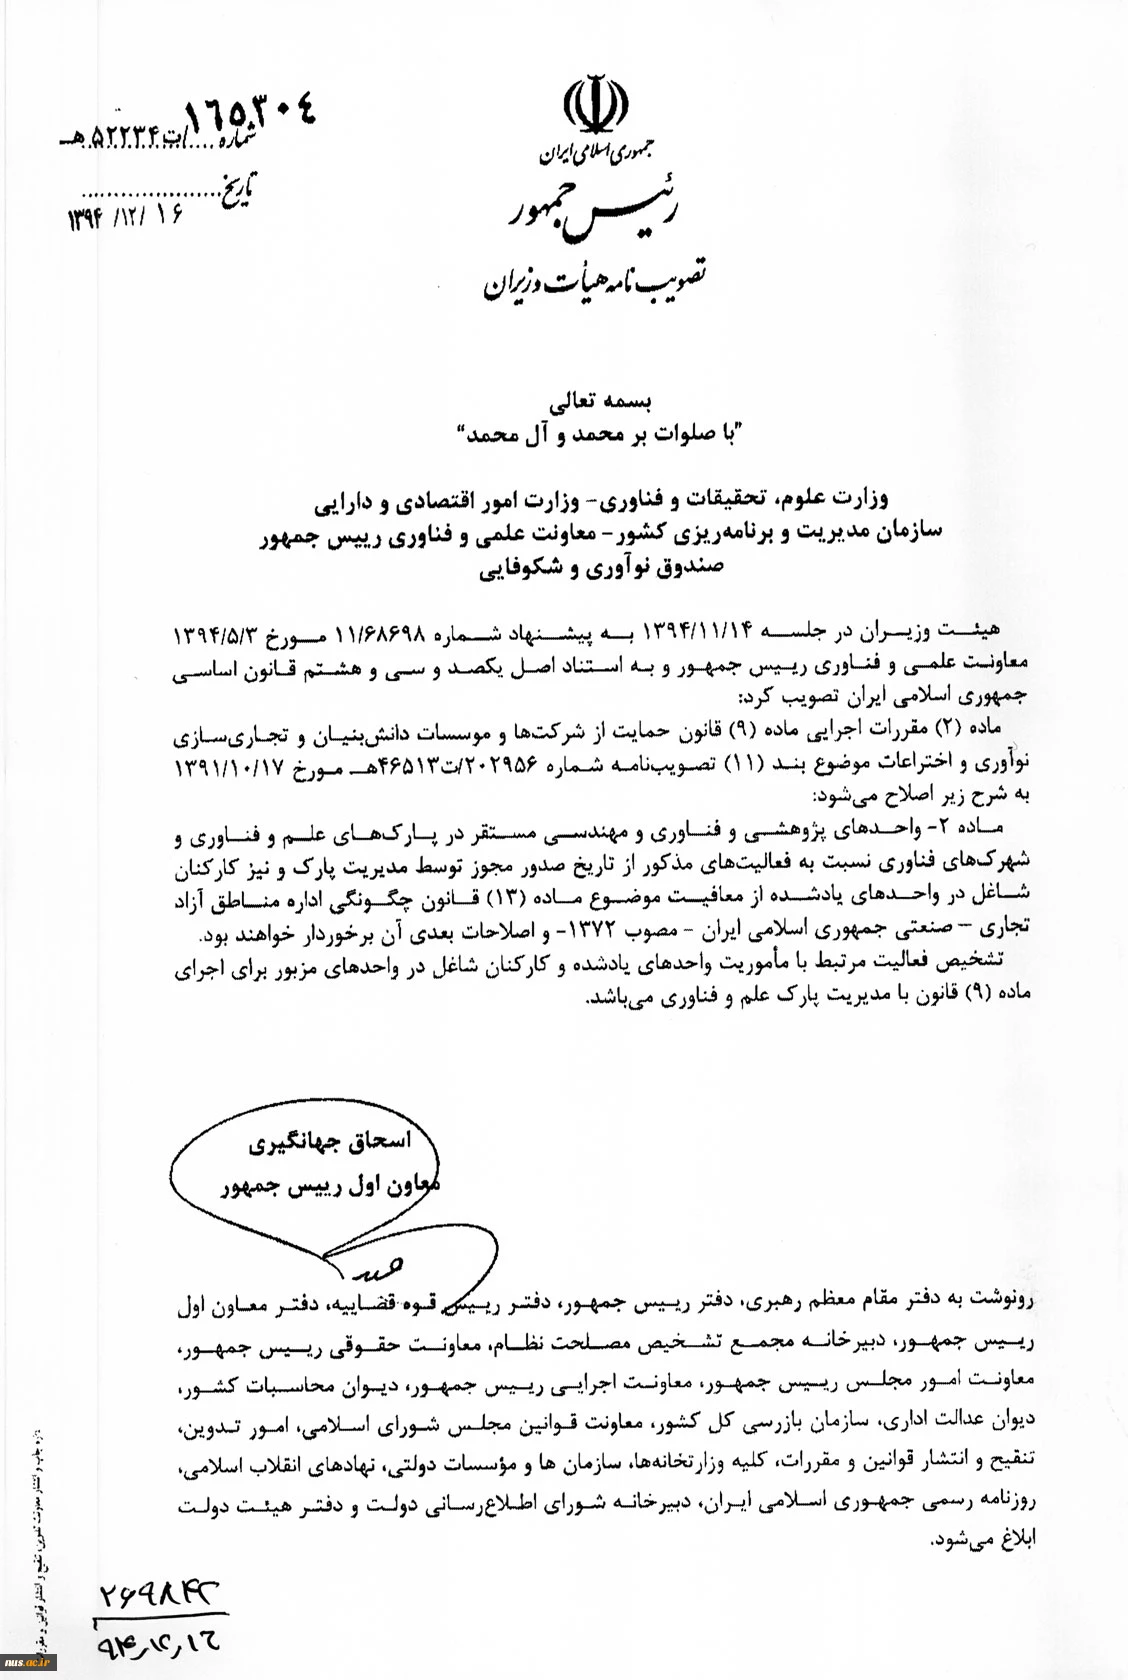 جمهوری اسلامی ایران
رئیس جمهور
تصویب نامه هیأت وزیران
۱۶۵۳۰۴
شماره..../ت۵۲۲۳۴هـ
تاریخ......................
۱۳۹۴/۱۲/۱۶
بسمه تعالی
"با صلوات بر محمد و آل محمد"
وزارت علوم، تحقیقات و فناوری- وزارت امور اقتصادی و دارایی
سازمان مدیریت و برنامه‌ریزی کشور- معاونت علمی و فناوری رییس جمهور
صندوق نوآوری و شکوفایی
هیئت وزیران در جلسه ۱۳۹۴/۱۱/۱۴ به پیشنهاد شماره ۱۱/۶۸۶۹۸ مورخ ۱۳۹۴/۵/۳
معاونت علمی و فناوری رییس جمهور و به استناد اصل یکصد و سی و هشتم قانون اساسی
جمهوری اسلامی ایران تصویب کرد:
ماده (۲) مقررات اجرایی ماده (۹) قانون حمایت از شرکت‌ها و موسسات دانش‌بنیان و تجاری‌سازی
نوآوری و اختراعات موضوع بند (۱۱) تصویب‌نامه شماره ۲۰۲۹۵۶/ت۴۶۵۱۳هـ مورخ ۱۳۹۱/۱۰/۱۷
به شرح زیر اصلاح می‌شود:
ماده ۲- واحدهای پژوهشی و فناوری و مهندسی مستقر در پارک‌های علم و فناوری و
شهرک‌های فناوری نسبت به فعالیت‌های مذکور از تاریخ صدور مجوز توسط مدیریت پارک و نیز کارکنان
شاغل در واحدهای یادشده از معافیت موضوع ماده (۱۳) قانون چگونگی اداره مناطق آزاد
تجاری – صنعتی جمهوری اسلامی ایران - مصوب ۱۳۷۲- و اصلاحات بعدی آن برخوردار خواهند بود.
تشخیص فعالیت مرتبط با مأموریت واحدهای یادشده و کارکنان شاغل در واحدهای مزبور برای اجرای
ماده (۹) قانون با مدیریت پارک علم و فناوری می‌باشد.
اسحاق جهانگیری
معاون اول رییس جمهور
رونوشت به دفتر مقام معظم رهبری، دفتر رییس جمهور، دفتر رییس قوه قضاییه، دفتر معاون اول
رییس جمهور، دبیرخانه مجمع تشخیص مصلحت نظام، معاونت حقوقی رییس جمهور،
معاونت امور مجلس رییس جمهور، معاونت اجرایی رییس جمهور، دیوان محاسبات کشور،
دیوان عدالت اداری، سازمان بازرسی کل کشور، معاونت قوانین مجلس شورای اسلامی، امور تدوین،
تنقیح و انتشار قوانین و مقررات، کلیه وزارتخانه‌ها، سازمان ها و مؤسسات دولتی، نهادهای انقلاب اسلامی،
روزنامه رسمی جمهوری اسلامی ایران، دبیرخانه شورای اطلاع‌رسانی دولت و دفتر هیئت دولت
ابلاغ می‌شود.
۲۶۹۸۴۲
۹۴,۱۲,۱۶
چاپ و انتشار معاونت تدوین، تنقیح و انتشار قوانین و مقررات
nus.ac.ir